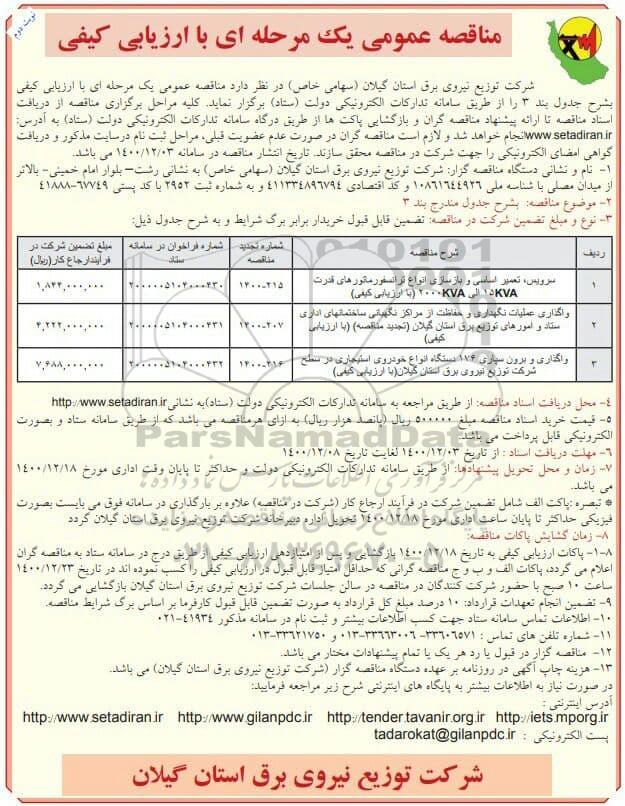 نوبت دوم
مناقصه عمومی یک مرحله ای با ارزیابی کیفی
شرکت توزیع نیروی برق استان گیلان (سهامی خاص) در نظر دارد مناقصه عمومی یک مرحله ای با ارزیابی کیفی
بشرح جدول بند ۳ را از طریق سامانه تدارکات الکترونیکی دولت (ستاد) برگزار نماید. کلیه مراحل برگزاری مناقصه از دریافت
اسناد مناقصه تا ارائه پیشنهاد مناقصه گران و بازگشایی پاکت ها از طریق درگاه سامانه تدارکات الکترونیکی دولت (ستاد) به آدرس:
www.setadiran.ir انجام خواهد شد و لازم است مناقصه گران در صورت عدم عضویت قبلی، مراحل ثبت نام درسایت مذکور و دریافت
گواهی امضای الکترونیکی را جهت شرکت در مناقصه محقق سازند. تاریخ انتشار مناقصه در سامانه ۱۴۰۰/۱۲/۰۳ می باشد.
۱- نام و نشانی دستگاه مناقصه گزار: شرکت توزیع نیروی برق استان گیلان (سهامی خاص) به نشانی رشت– بلوار امام خمینی- بالاتر
از میدان مصلی با شناسه ملی ۱۰۸۶۱۶۴۴۹۲۶ و کد اقتصادی ۴۱۱۳۳۴۸۹۶۷۹۴ و به شماره ثبت ۲۹۵۲ با کد پستی ۶۷۷۴۹-۴۱۸۸۸
۲- موضوع مناقصه: بشرح جدول مندرج بند ۳
۳- نوع و مبلغ تضمین شرکت در مناقصه: تضمین قابل قبول خریدار برابر برگ شرایط و به شرح جدول ذیل:
ردیف شرح مناقصه شماره تجدید مناقصه شماره فراخوان در سامانه ستاد مبلغ تضمین شرکت در فرآیندارجاع کار(ریال)
۱ سرویس، تعمیر اساسی و بازسازی انواع ترانسفورماتورهای قدرت ۱۵KVA الی ۲۰۰۰KVA (با ارزیابی کیفی) ۱۴۰۰-۲۱۵ ۲۰۰۰۰۰۵۱۰۴۰۰۰۴۳۰ ۱,۸۴۴,۰۰۰,۰۰۰
۲ واگذاری عملیات نگهداری و حفاظت از مراکز نگهبانی ساختمانهای اداری ستاد و امورهای توزیع برق استان گیلان (تجدید مناقصه) (با ارزیابی کیفی) ۱۴۰۰-۲۰۷ ۲۰۰۰۰۰۵۱۰۴۰۰۰۴۳۱ ۴,۲۲۲,۰۰۰,۰۰۰
۳ واگذاری و برون سپاری ۱۷۶ دستگاه انواع خودروی استیجاری در سطح شرکت توزیع نیروی برق استان گیلان(با ارزیابی کیفی) ۱۴۰۰-۲۱۶ ۲۰۰۰۰۰۵۱۰۴۰۰۰۴۳۲ ۷,۶۸۸,۰۰۰,۰۰۰
۴- محل دریافت اسناد مناقصه: از طریق مراجعه به سامانه تدارکات الکترونیکی دولت (ستاد)به نشانی http://www.setadiran.ir
۵- قیمت خرید اسناد مناقصه مبلغ ۵۰۰۰۰۰ ریال (پانصد هزار ریال) به ازای هرمناقصه می باشد که از طریق سامانه ستاد و بصورت
الکترونیکی قابل پرداخت می باشد.
۶- مهلت دریافت اسناد : از تاریخ ۱۴۰۰/۱۲/۰۳ لغایت تاریخ ۱۴۰۰/۱۲/۰۸
۷- زمان و محل تحویل پیشنهادها: از طریق سامانه تدارکات الکترونیکی دولت و حداکثر تا پایان وقت اداری مورخ ۱۴۰۰/۱۲/۱۸
می باشد.
* تبصره :پاکت الف شامل تضمین شرکت در فرآیند ارجاع کار (شرکت در مناقصه) علاوه بر بارگذاری در سامانه فوق می بایست بصورت
فیزیکی حداکثر تا پایان ساعت اداری مورخ ۱۴۰۰/۱۲/۱۸ تحویل اداره دبیرخانه شرکت توزیع نیروی برق استان گیلان گردد
۸- زمان گشایش پاکات مناقصه:
۱-۸- پاکات ارزیابی کیفی به تاریخ ۱۴۰۰/۱۲/۱۸ بازگشایی و پس از امتیازدهی ارزیابی کیفی از طریق درج در سامانه ستاد به مناقصه گران
اعلام می گردد، پاکات الف و ب و ج مناقصه گرانی که حداقل امتیاز قابل قبول در ارزیابی کیفی را کسب نموده اند در تاریخ ۱۴۰۰/۱۲/۲۳
ساعت ۱۰ صبح با حضور شرکت کنندگان در مناقصه در سالن جلسات شرکت توزیع نیروی برق استان گیلان بازگشایی می گردد.
۹- تضمین انجام تعهدات قرارداد: ۱۰ درصد مبلغ کل قرارداد به صورت تضمین قابل قبول کارفرما بر اساس برگ شرایط مناقصه.
۱۰- اطلاعات تماس سامانه ستاد جهت کسب اطلاعات بیشتر و ثبت نام در سامانه مذکور ۴۱۹۳۴-۰۲۱
۱۱- شماره تلفن های تماس : ۳۳۶۰۶۵۷۱- ۳۳۶۶۳۰۰۶-۰۱۳ و ۳۳۶۲۱۷۵۰-۰۱۳
۱۲- مناقصه گزار در قبول یا رد هر یک یا تمام پیشنهادات مختار می باشد.
۱۳- هزینه چاپ آگهی در روزنامه بر عهده دستگاه مناقصه گزار (شرکت توزیع نیروی برق استان گیلان) می باشد.
در صورت نیاز به اطلاعات بیشتر به پایگاه های اینترنتی شرح زیر مراجعه فرمایید:
آدرس اینترنتی :
http://www.setadiran.ir http://www.gilanpdc.ir http://tender.tavanir.org.ir http://iets.mporg.ir
پست الکترونیکی : tadarokat@gilanpdc.ir
شرکت توزیع نیروی برق استان گیلان
ParsNamadData